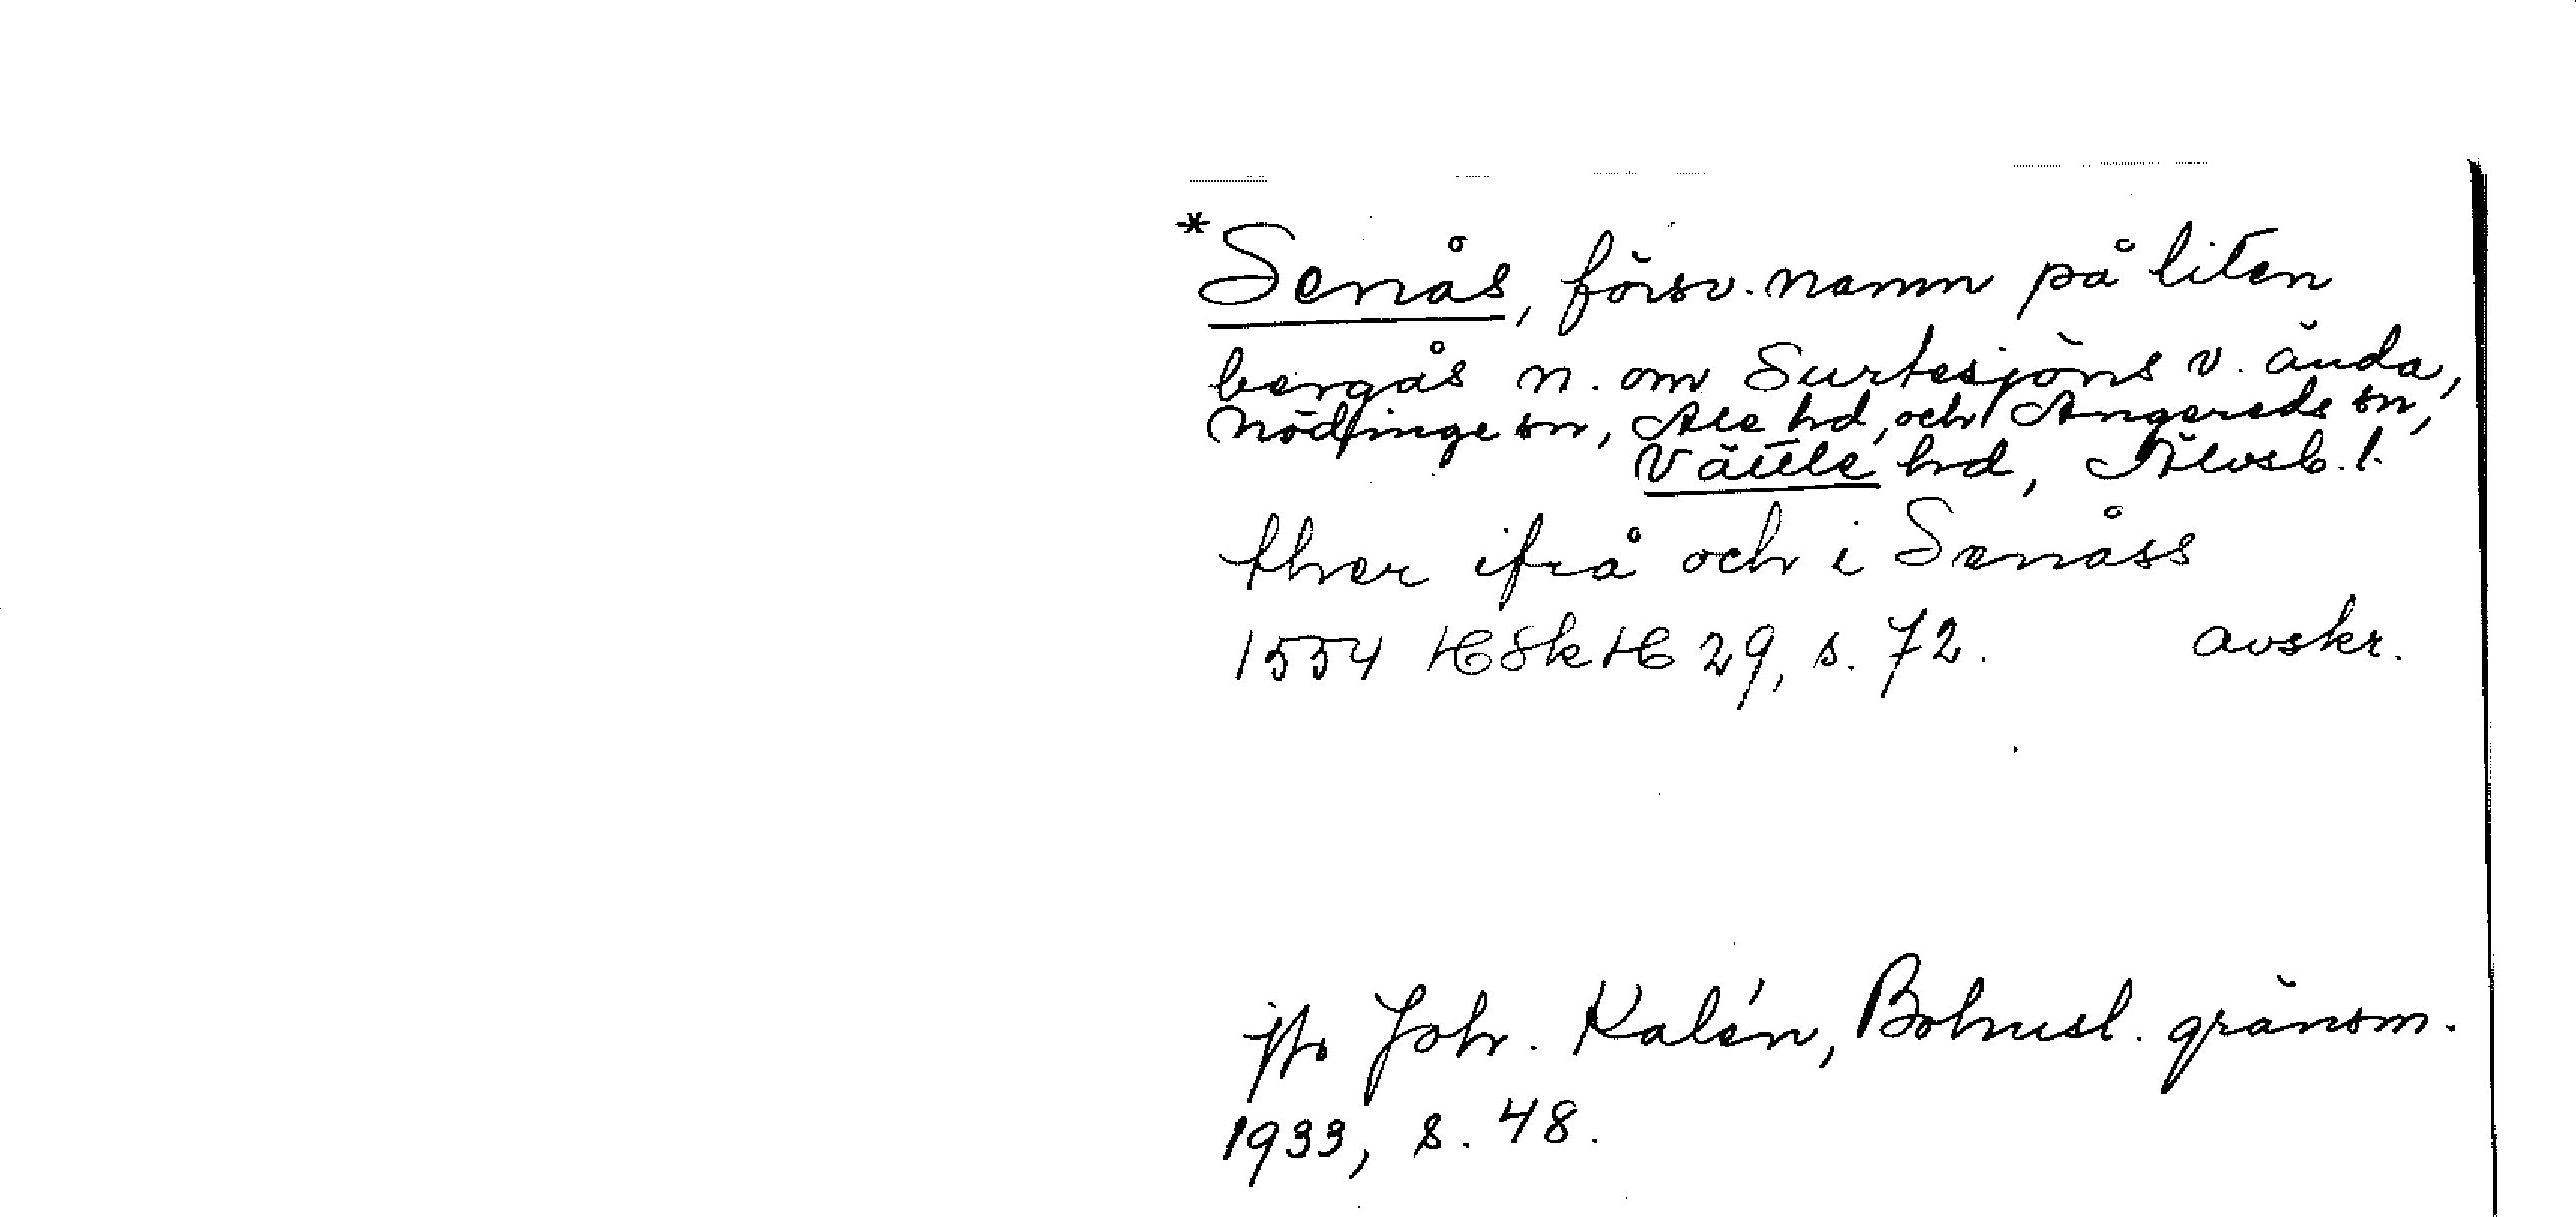 *Senås, försv. namn på liten
bergås n. om Surtesjöns v. ända,
Nödinge sn, Ale hd, och Angereds sn,
Vättle hd, Älvsb. l.
ther ifrå och i Senåss
1554 HSkH 29, s. 72. avskr.
jfr Joh. Kalén, Bohusl. gränsm.
1933, s. 48.